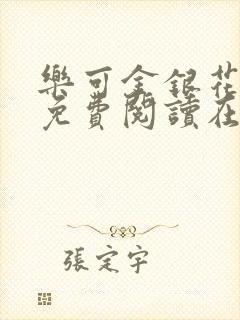 樂可金銀花
免費閱讀在
張定宇